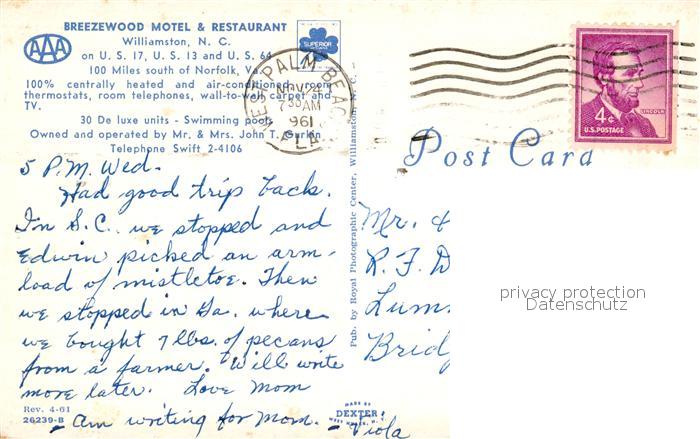 BREEZEWOOD MOTEL & RESTAURANT
Williamston, N. C.
on U. S. 17, U. S. 13 and U. S. 64
100 Miles south of Norfolk, Va.
100% centrally heated and air-conditioned,
thermostats, room telephones, wall-to-wall carpet and
TV.
30 De luxe units - Swimming pool
Owned and operated by Mr. & Mrs. John T. Gurkin
Telephone Swift 2-4106
AAA
SUPERIOR
WEST PALM BEACH
NOV 24
7 30 AM
1961
FLA.
LINCOLN
4¢
U.S. POSTAGE
Post Card
5 P.M. Wed.
Had good trip back.
In S.C. we stopped and
Edwin picked an arm-
load of mistletoe. Then
we stopped in Ga. where
we bought 7 lbs. of pecans
from a farmer. Will write
more later. Love Mom
- Am writing for Mom. - Viola
Rev. 4-61
26239-B
Pub. by Royal Photographic Center, Williamston, N. C.
MADE BY
DEXTER
WEST NYACK, N. Y.
Mr. &
R. F. D
Lum
Bridg
privacy protection
Datenschutz